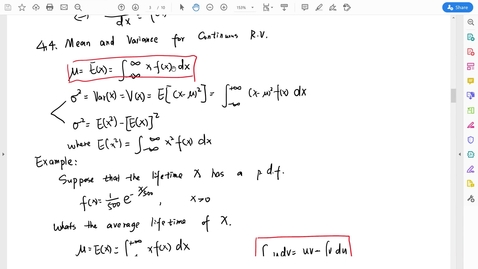 dx
4.4. Mean and Variance for Continuous R.V.
μ = E(X) = ∫_{-∞}^{∞} x f(x) dx
σ² = Var(X) = V(X) = E[(X-μ)²] = ∫_{-∞}^{+∞} (x-μ)² f(x) dx
σ² = E(X²) - [E(X)]²
where E(X²) = ∫_{-∞}^{∞} x² f(x) dx
Example:
Suppose that the lifetime X has a pdf.
f(x) = 1/500 e^{-x/500}, x>0
Whats the average lifetime of X.
μ = E(X) = ∫^{+∞} x f(x) dx
∫ u dv = uv - ∫ v du